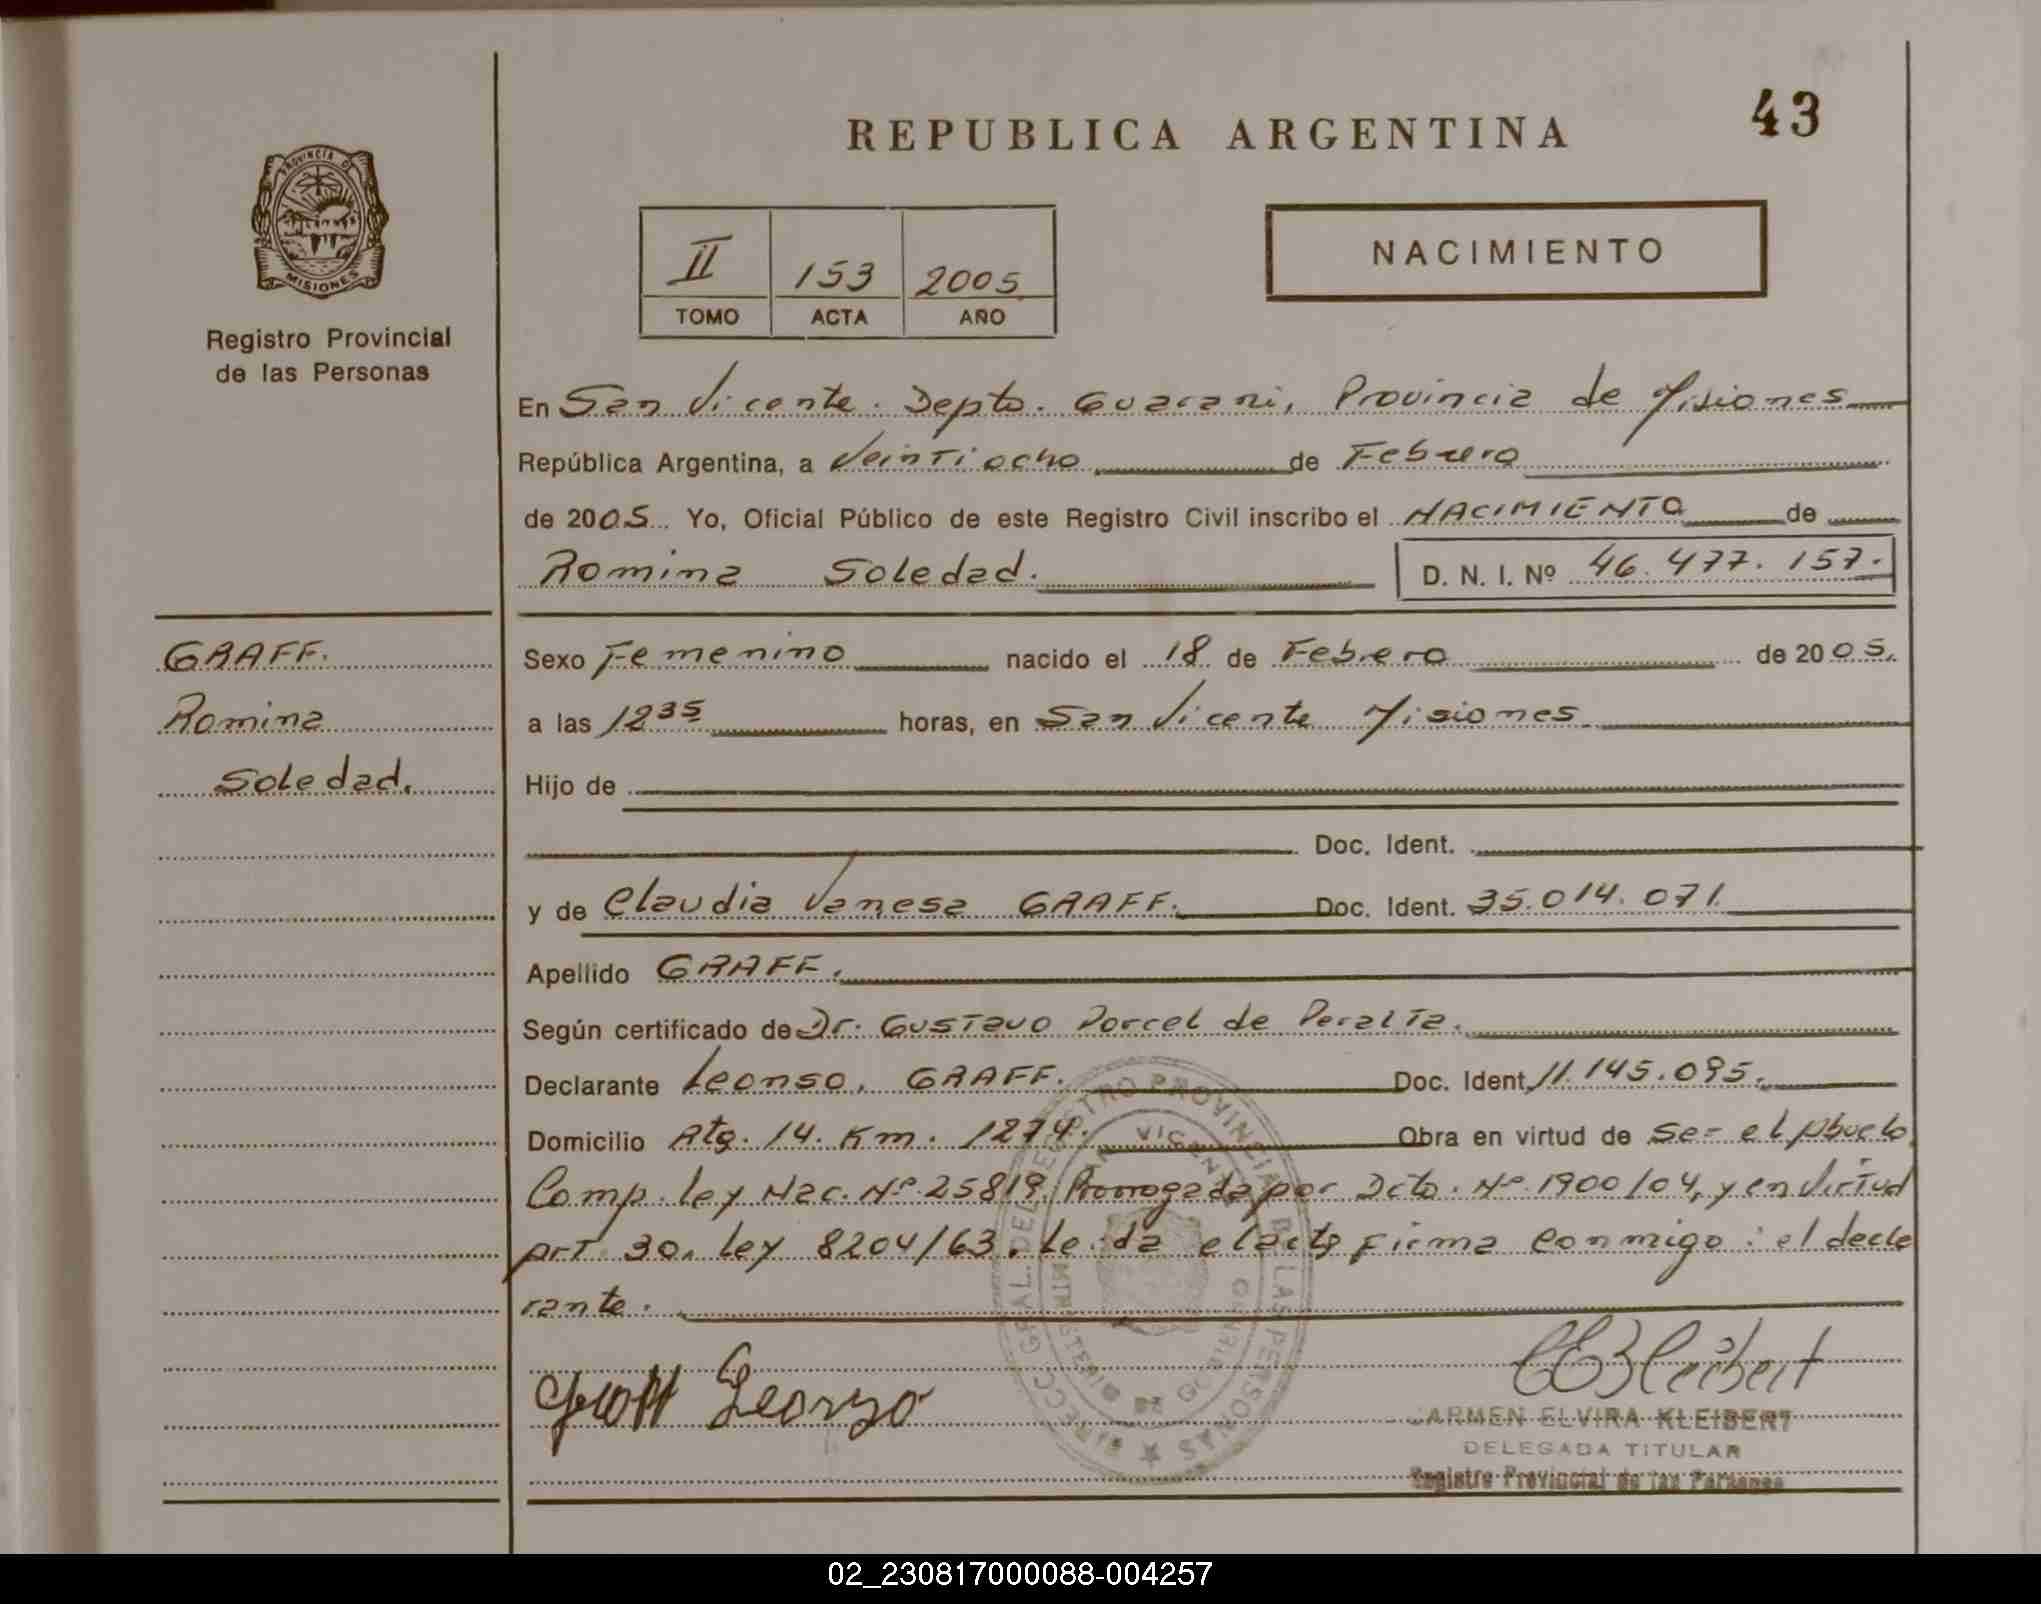 43
REPUBLICA ARGENTINA
PROVINCIA DE
MISIONES
Registro Provincial
de las Personas
II 153 2005
TOMO ACTA AÑO
NACIMIENTO
En San Vicente. Depto. Guarani, Provincia de Misiones
República Argentina, a Veintiocho de Febrero
de 2005 Yo, Oficial Público de este Registro Civil inscribo el NACIMIENTO de
Romina Soledad. D. N. I. Nº 46.477.157.
GRAFF.
Romina
Soledad.
Sexo Femenino nacido el 18 de Febrero de 2005.
a las 12 35 horas, en San Vicente Misiones
Hijo de
Doc. Ident.
y de Claudia Vanesa GRAFF. Doc. Ident. 35.014.071.
Apellido GRAFF.
Según certificado de Dr. Gustavo Porcel de Peralta.
Declarante Leonso, GRAFF. Doc. Ident. 11.145.095.
Domicilio Rta. 14. Km. 1274. Obra en virtud de Ser el Abuelo
Comp. Ley Nac. Nº 25819. Prorrogada por Dcto. Nº 1900/04, y en Virtud
Art. 30. Ley 8204/63. Leida el acta firma conmigo: el decla
rante.
Graff Leonzo
CEKleibert
CARMEN ELVIRA KLEIBERT
DELEGADA TITULAR
Registro Provincial de las Personas
02_230817000088-004257